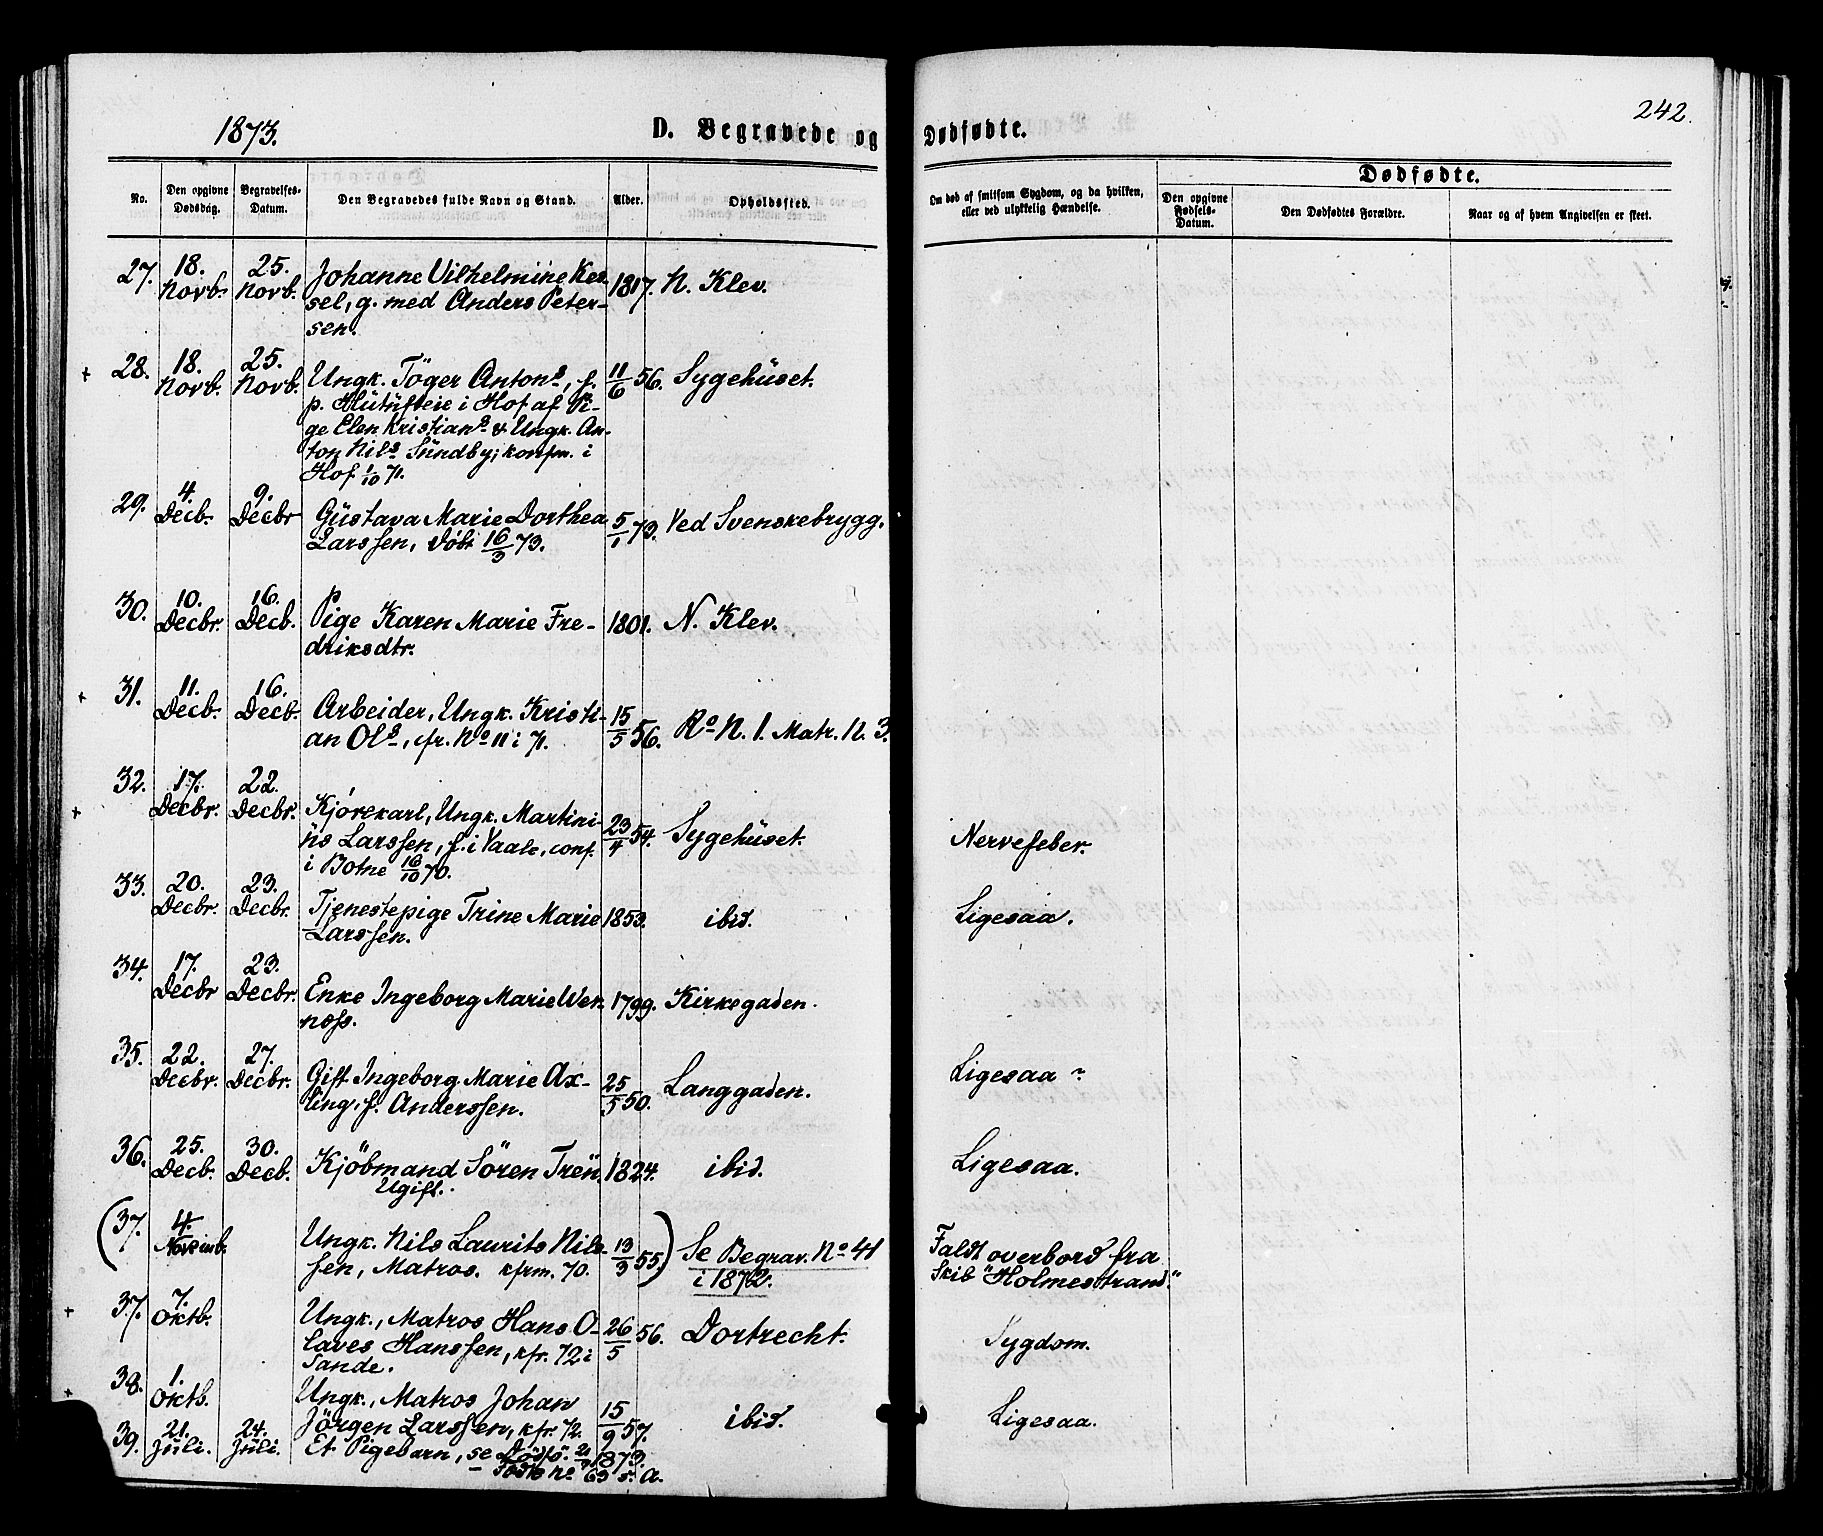 1873.
D. Begravede og Dødfødte.
242.
No.
Den opgivne Dødsdag.
Begravelses-Datum.
Den Begravedes fulde Navn og Stand.
Alder.
Opholdssted.
Om død af smitsom Sygdom, og da hvilken,
eller ved ulykkelig Hændelse.
Dødfødte.
Den opgivne Fødsels-Datum.
Den Dødfødtes Forældre.
Naar og af hvem Angivelsen er skeet.
27. 18. Novb. 25. Novb. Johanne Vilhelmine Kes- 1817. N. Klev.
sel, g. med Anders Peter-
sen.
+ 28. 18. Novb. 25. Novb. Ungk. Töger Antons, f. 11/6 56. Sygehüset.
p. i Hof af Pi-
ge Elen Kristians & Ungk. An-
ton Nils Sündby; konfm. i
Hof 1/10 71.
29. 4. Decb. 9. Decbr Güstava Marie Dorthea 5/1 73. Ved Svenskebrygg.
Larssen, döbt 16/3 73.
30. 10. Decbr. 16. Decb. Pige Karen Marie Fre- 1801. N. Klev.
driksdtr.
+ 31. 11. Decb. 16. Decb. Arbeider, Ungk. Kristi- 15/5 56. Ro N. 1. Matr. N. 3.
an Ols, cfr. No 11 i 71.
+ 32. 17. Decbr. 22. Decbr. Kjörekarl, Ungk. Martini- 23/4 54. Sygehüset. Nervefeber.
üs Larssen, f. i Vaale, conf.
i Botne 16/10 70.
33. 20. Decbr. 23. Decbr. Tjenestepige Trine Marie 1853. ibid. Ligesaa.
Larssen.
34. 17. Decbr 23. Decbr. Enke Ingeborg Marie Wer- 1799. Kirkegaden.
ness.
35. 22. Decbr. 27. Decbr. Gift Ingeborg Marie Ax- 25/5 50. Langgaden. Ligesaa ?
ling, f. Anderssen.
36. 25. Decb. 30. Decb. Kjöbmand Sören Treü 1824. ibid. Ligesaa.
Ugift.
(37. 4. Novemb. Ungk. Nils Laurits Nils- 13/3 55.) Se Begrav. No 41 Faldt overbord fra
sen, Matros. kfrm. 70. i 1872. Skib "Holmestrand."
+ 37. 7. Oktb. Ungk., Matros Hans O- 26/5 56. Dortrecht. Sygdom.
laves Hanssen, kfr. 72 i
Sande.
+ 38. 1. Oktb. Ungk., Matros Johan 15/9 57. ibid. Ligesaa.
Jörgen Larssen, kfr. 72.
39. 21. Jüli. 24. Jüli. Et Pigebarn, se Dödfö. 21/7 1873.
Födte No 63 s. A.